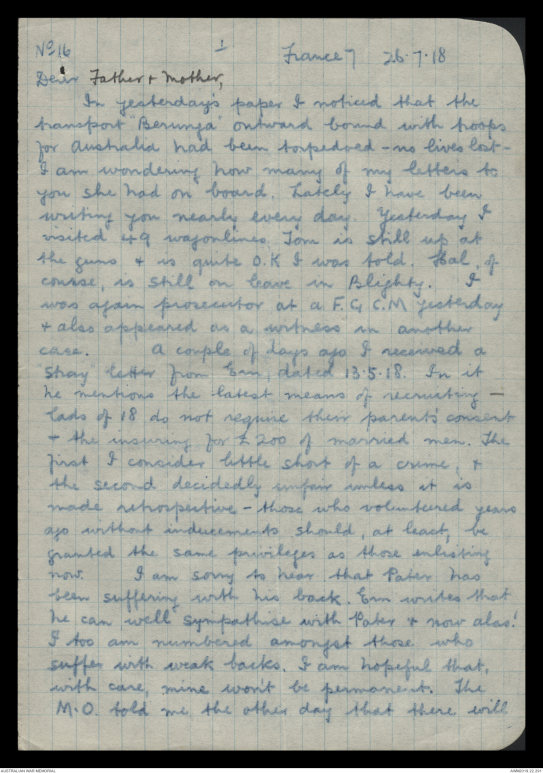 No 16 1 France 7 26.7.18
Dear Father & Mother,
In yesterday's paper I noticed that the
transport "Barunga" outward bound with troops
for Australia had been torpedoed - no lives lost -
I am wondering how many of my letters to
you she had on board. Lately I have been
writing you nearly every day. Yesterday I
visited 49 wagonlines. Tom is still up at
the guns & is quite O.K I was told. Hal, of
course, is still on leave in Blighty. I
was again prosecutor at a F.G.C.M yesterday
& also appeared as a witness in another
case. A couple of days ago I received a
"stray" letter from Ern, dated 13.5.18. In it
he mentions the latest means of recruiting -
lads of 18 do not require their parents' consent
& the insuring for £200 of married men. The
first I consider little short of a crime, &
the second decidedly unfair unless it is
made retrospective - those who volunteered years
ago without inducements should, at least, be
granted the same privileges as those enlisting
now. I am sorry to hear that Pater has
been suffering with his back. Ern writes that
he can well sympathise with Pater & now alas!
I too am numbered amongst those who
suffer with weak backs. I am hopeful that,
with care, mine won't be permanent. The
M.O. told me the other day that there will
AUSTRALIAN WAR MEMORIAL